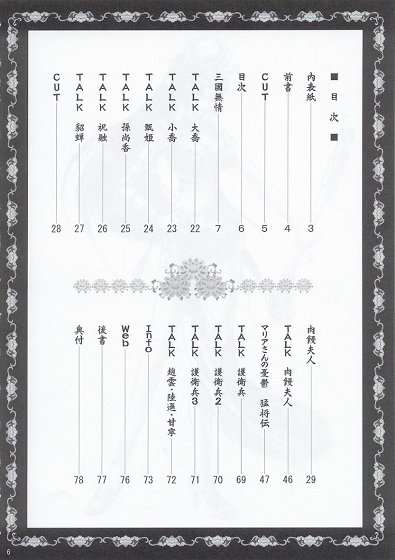 ■ 目 次 ■
内表紙 3
前書 4
CUT 5
目次 6
三國無情 7
TALK 大喬 22
TALK 小喬 23
TALK 甄姫 24
TALK 孫尚香 25
TALK 祝融 26
TALK 貂蝉 27
CUT 28
肉饅夫人 29
TALK 肉饅夫人 46
マリアさんの憂鬱 猛将伝 47
TALK 護衛兵 69
TALK 護衛兵2 70
TALK 護衛兵3 71
TALK 趙雲・陸遜・甘寧 72
Info 73
Web 76
後書 77
奥付 78
6